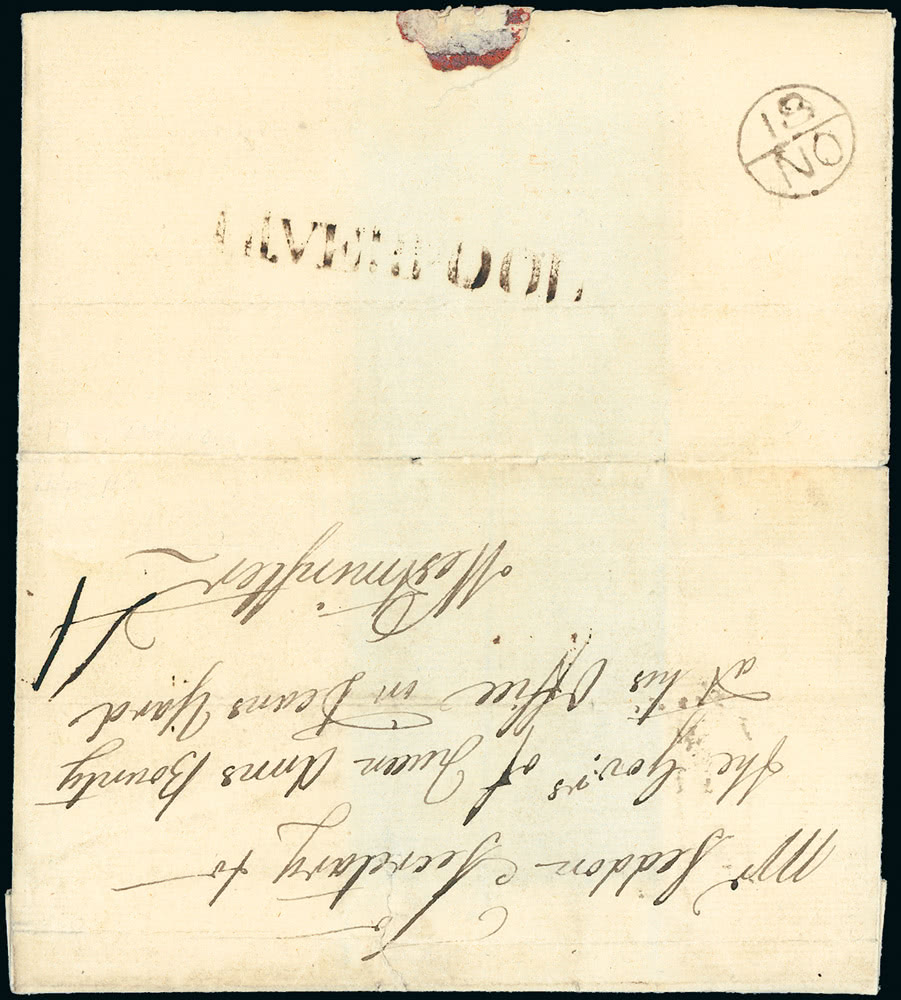 19
NO
LIVERPOOL
To
Mr Seddon Secretary to
the Gov:rs of Queen Anns Bounty
at his Office in Deans Yard
Westminster
4